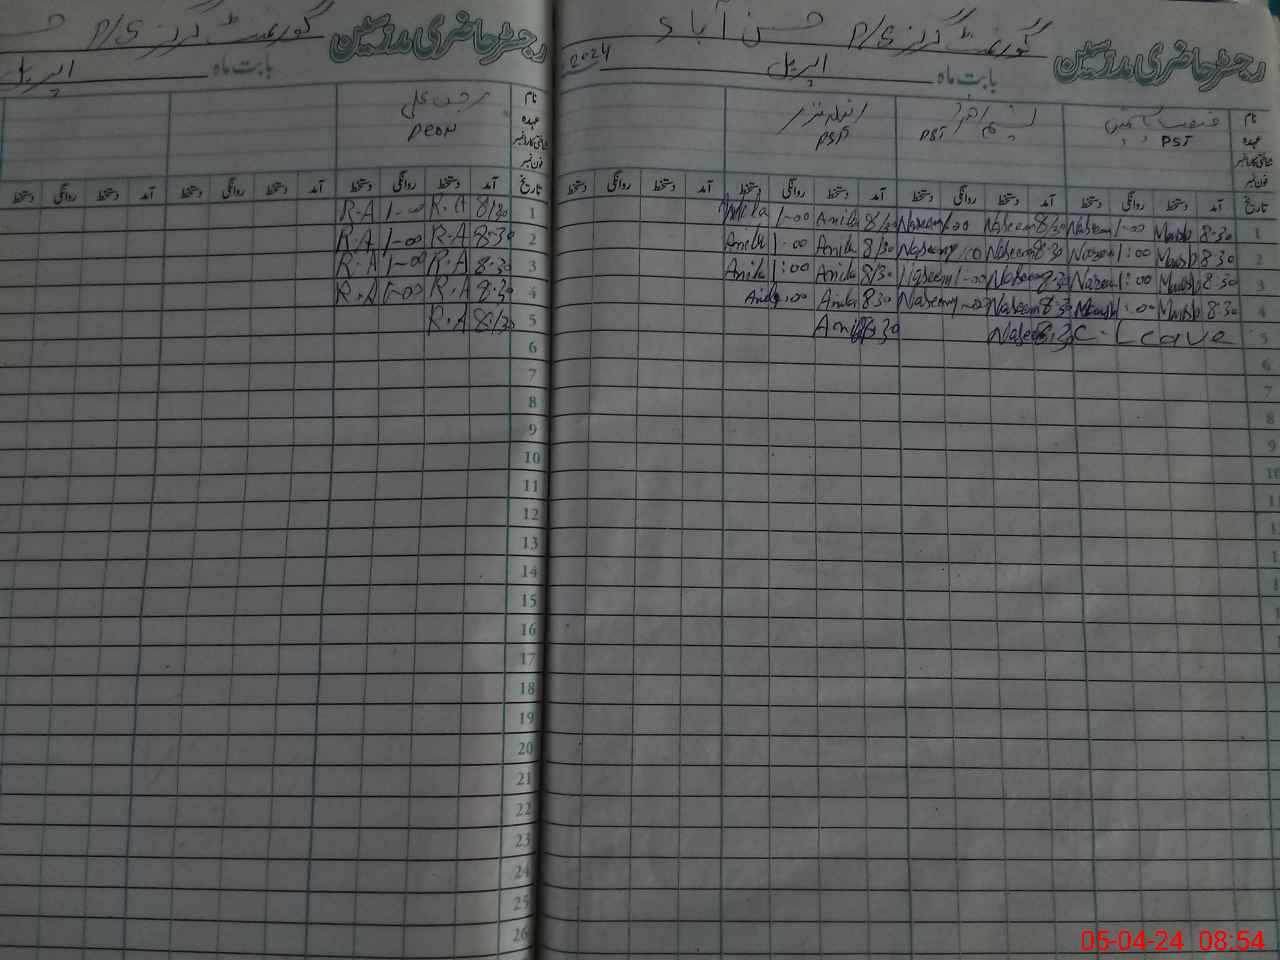 رجسٹر حاضری مدرسین گورنمنٹ گرلز P/S حسن آباد
بابت ماہ اپریل 2024
نام
عہدہ PST PST PST
شناختی کارڈ نمبر
فون نمبر
تاریخ آمد دستخط روانگی دستخط آمد دستخط روانگی دستخط آمد دستخط روانگی دستخط آمد دستخط روانگی دستخط
1 8:30 1-00 Naseem 8/30 Naseem 1:00 Naseem 8/30 Anila 1-00 Anila
2 8:30 1:00 Naseem 8:30 Naseem 1:00 Naseem 8/30 Anila 1:00 Anila
3 8:30 1:00 Naseem 8:30 Naseem 1-00 Naseem 8/30 Anila 1:00 Anila
4 8:30 1:00 8:30 Naseem 1-00 Naseem 8:30 Anila 1:00 Anila
5 C-Leave 8:30 Naseem 8:30 Anila
6
7
8
9
10
11
12
رجسٹر حاضری مدرسین گورنمنٹ گرلز P/S
بابت ماہ اپریل
نام
عہدہ Peon
شناختی کارڈ نمبر
فون نمبر
تاریخ آمد دستخط روانگی دستخط آمد دستخط روانگی دستخط آمد دستخط روانگی دستخط
1 8/30 R.A 1-00 R.A
2 8-30 R.A 1-00 R.A
3 8:30 R.A 1-00 R.A
4 8:30 R.A 1-00 R.A
5 8:30 R.A
6
7
8
9
10
11
12
13
14
15
16
17
18
19
20
21
22
23
24
25
26
05-04-24 08:54